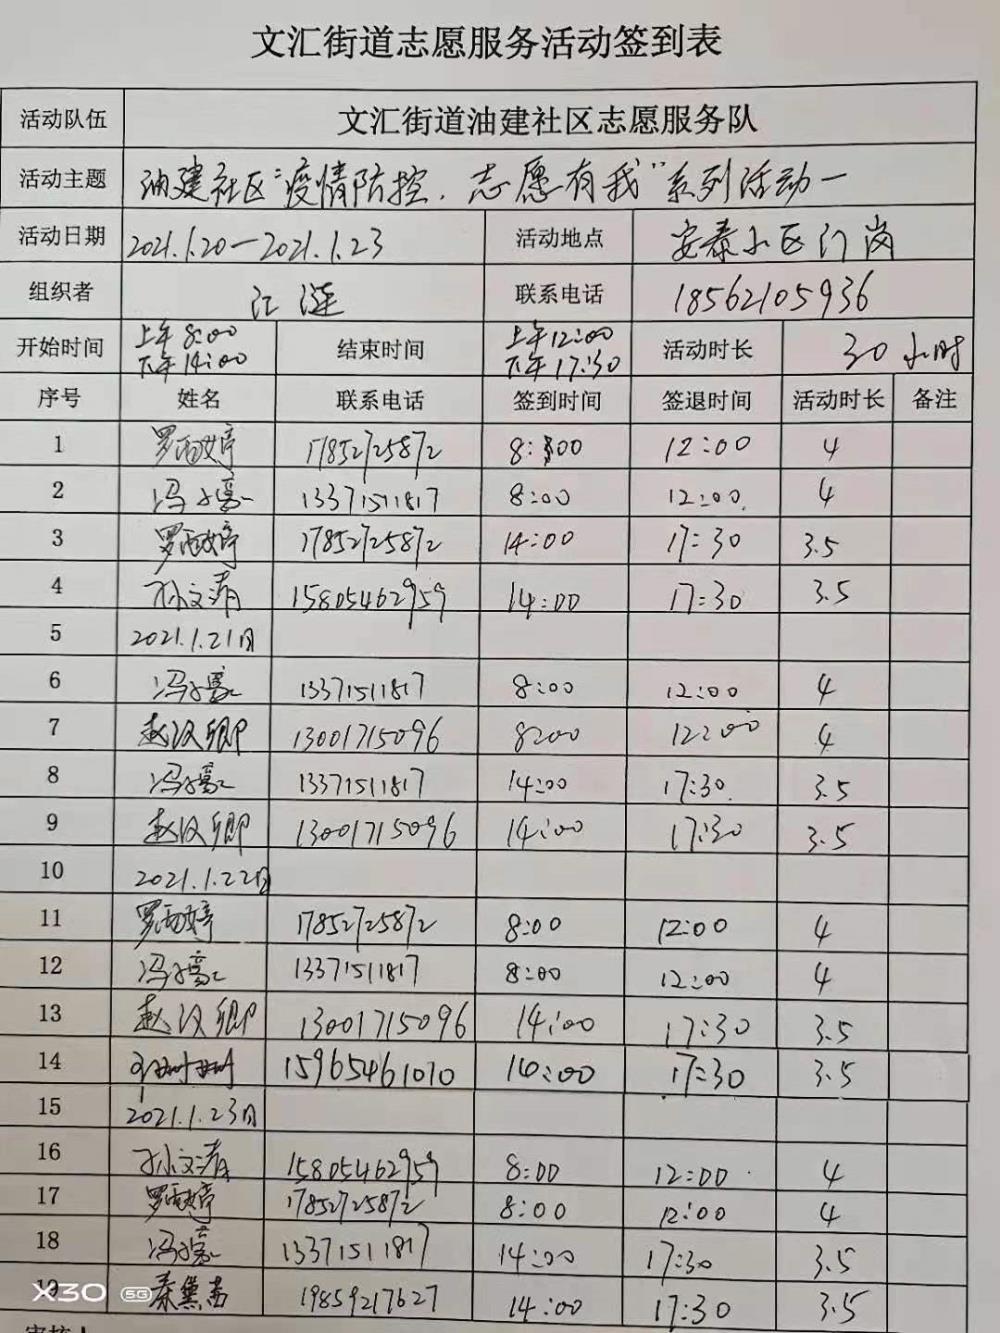 文汇街道志愿服务活动签到表
活动队伍 文汇街道油建社区志愿服务队
活动主题 油建社区"疫情防控，志愿有我"系列活动一
活动日期 2021.1.20—2021.1.23 活动地点 安泰小区门岗
组织者 江涟 联系电话 18562105936
开始时间 上午8:00 下午14:00 结束时间 上午12:00 下午17:30 活动时长 30小时
序号 姓名 联系电话 签到时间 签退时间 活动时长 备注
1 罗雨婷 17852725872 8:00 12:00 4
2 冯子豪 13371511817 8:00 12:00 4
3 罗雨婷 17852725872 14:00 17:30 3.5
4 孙文清 15805462959 14:00 17:30 3.5
5 2021.1.21日
6 冯子豪 13371511817 8:00 12:00 4
7 赵汉卿 13001715096 8:00 12:00 4
8 冯子豪 13371511817 14:00 17:30 3.5
9 赵汉卿 13001715096 14:00 17:30 3.5
10 2021.1.22日
11 罗雨婷 17852725872 8:00 12:00 4
12 冯子豪 13371511817 8:00 12:00 4
13 赵汉卿 13001715096 14:00 17:30 3.5
14 15965461070 14:00 17:30 3.5
15 2021.1.23日
16 孙文清 15805462959 8:00 12:00 4
17 罗雨婷 17852725872 8:00 12:00 4
18 冯子豪 13371511817 14:00 17:30 3.5
19 秦黛茜 19859217627 14:00 17:30 3.5
X30 5G